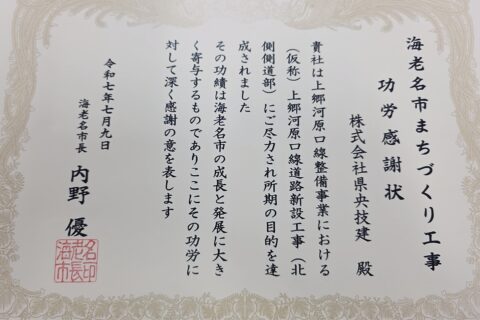 海老名市まちづくり工事
功労感謝状
株式会社県央技建 殿
貴社は上郷河原口線整備事業における
(仮称)上郷河原口線道路新設工事(北
側側道部)にご尽力され所期の目的を達
成されました
その功績は海老名市の成長と発展に大き
く寄与するものでありここにその功労に
対して深く感謝の意を表します
令和七年七月九日
海老名市長 内野 優
海老名市長之印